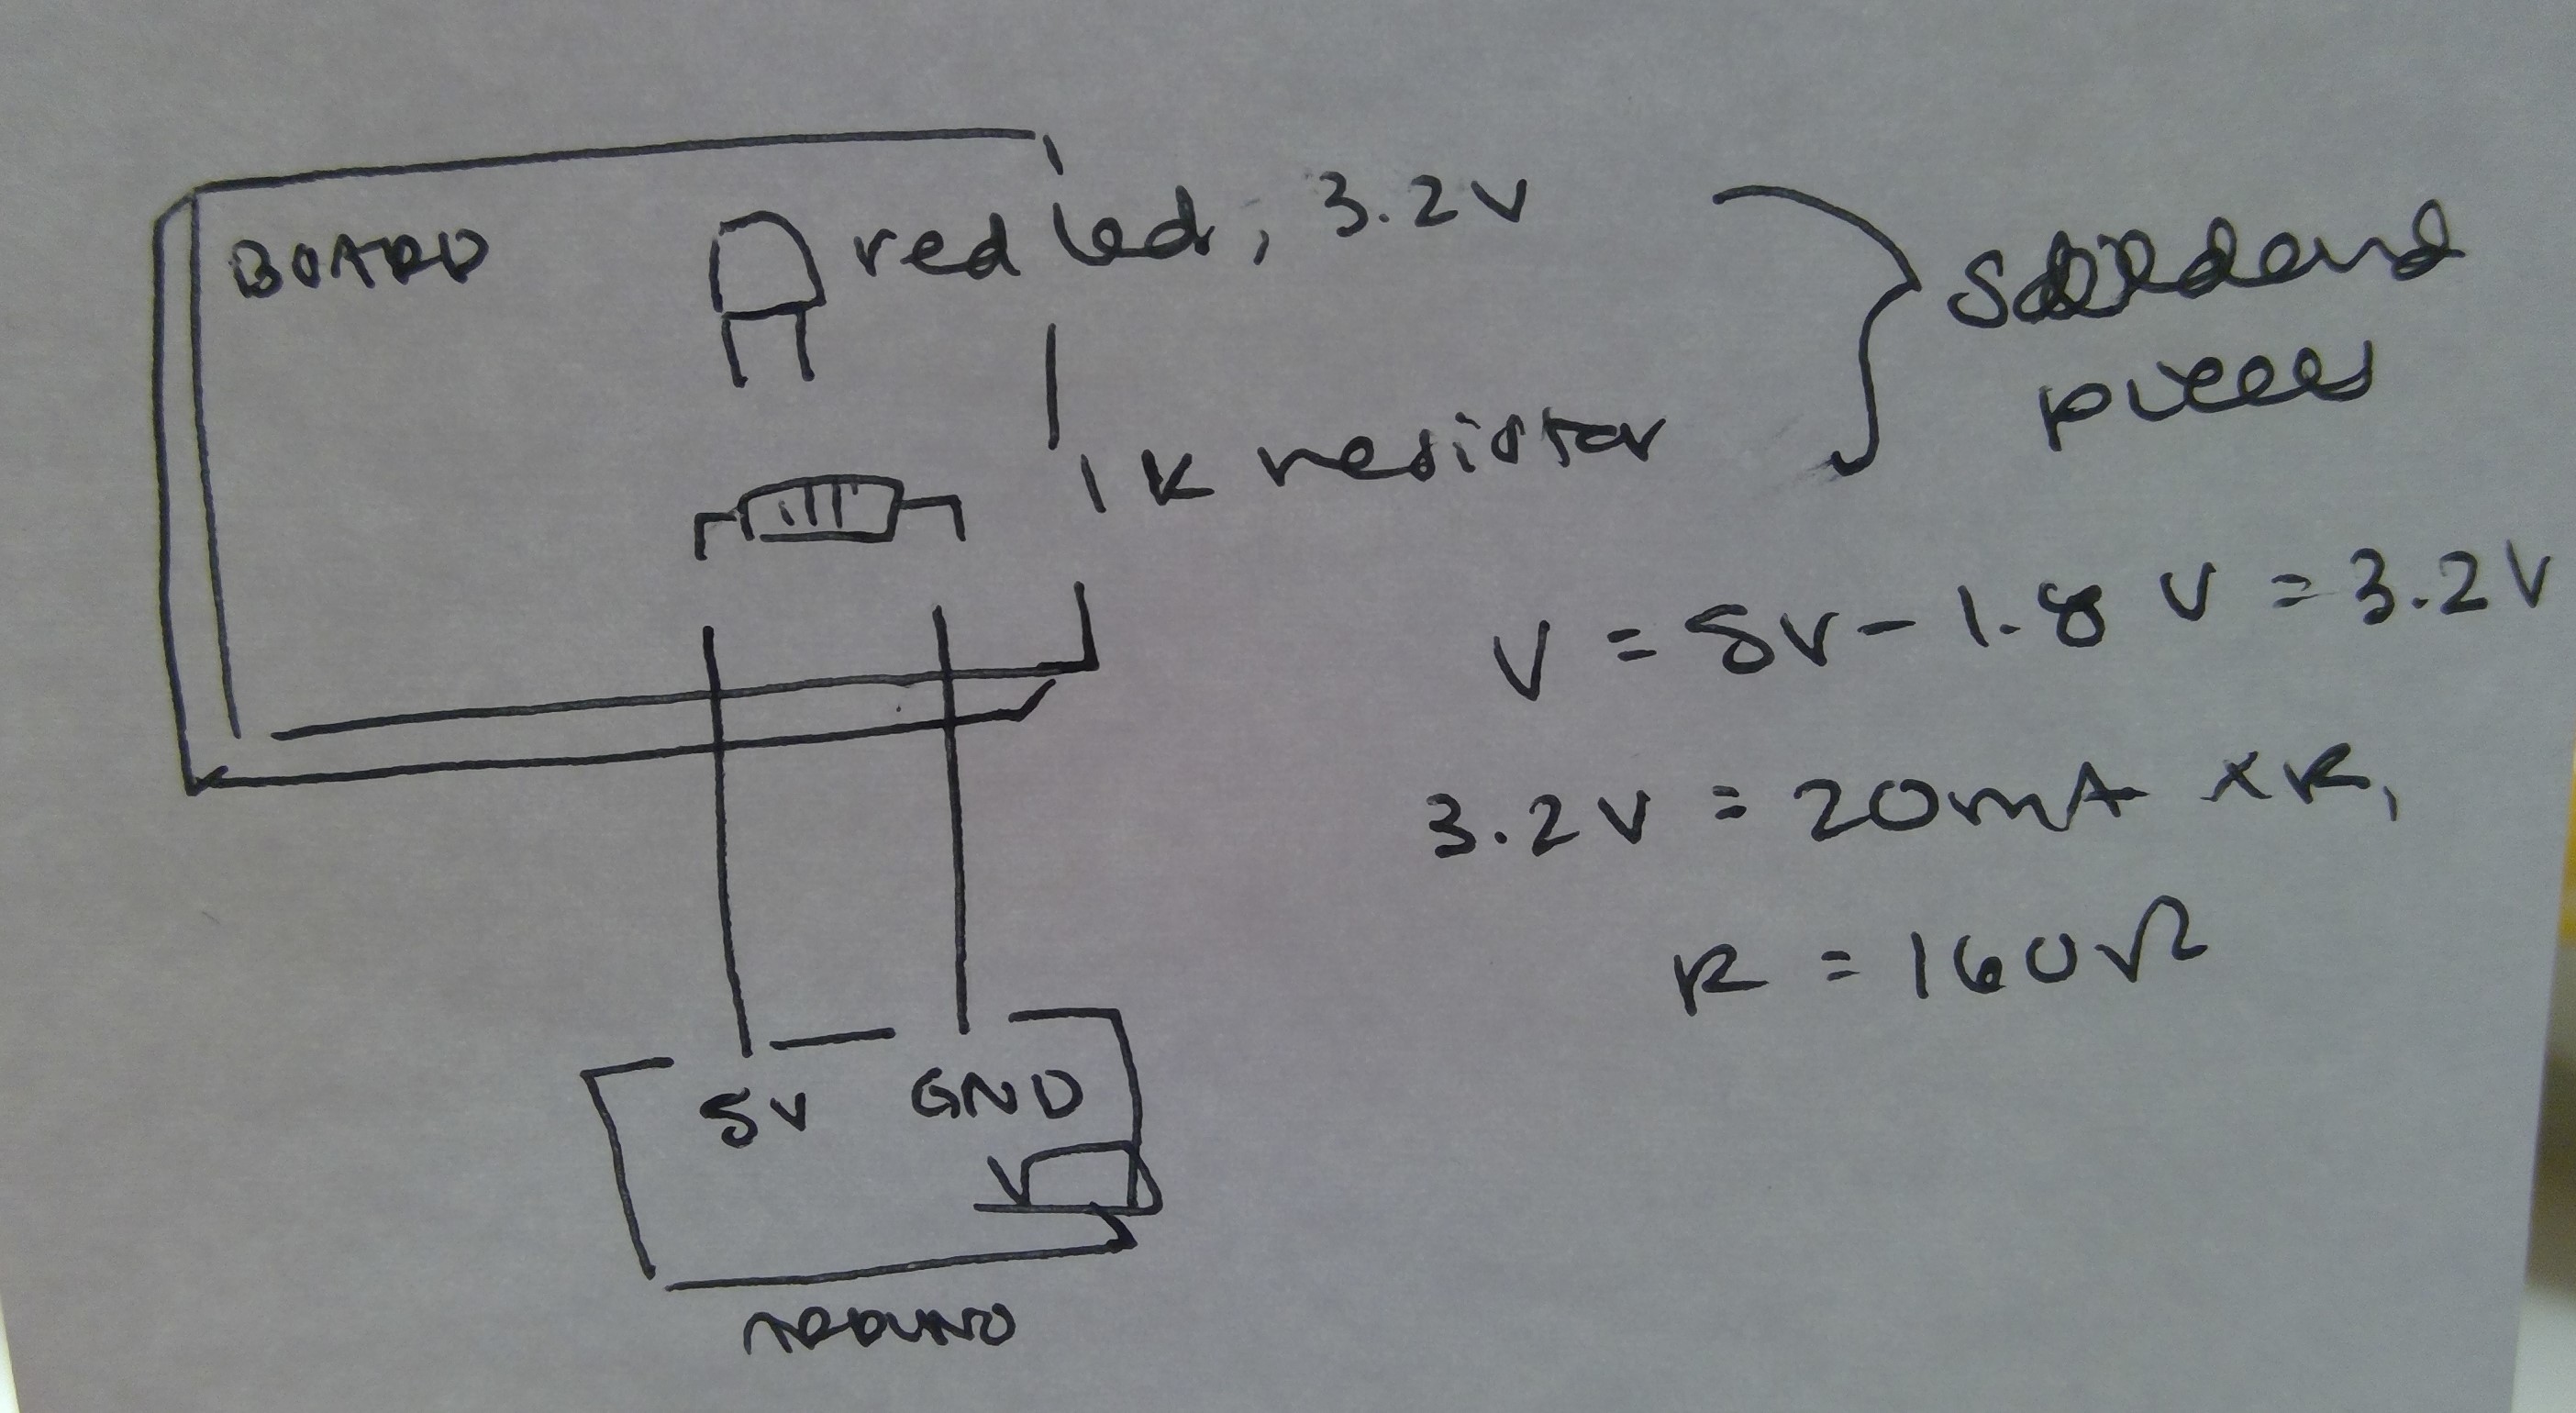 BOARD
red led, 3.2V
1K resistor
pieces
V = 5V - 1.8 V = 3.2V
3.2V = 20mA x R,
R = 160Ω
5V GND
ARDUINO